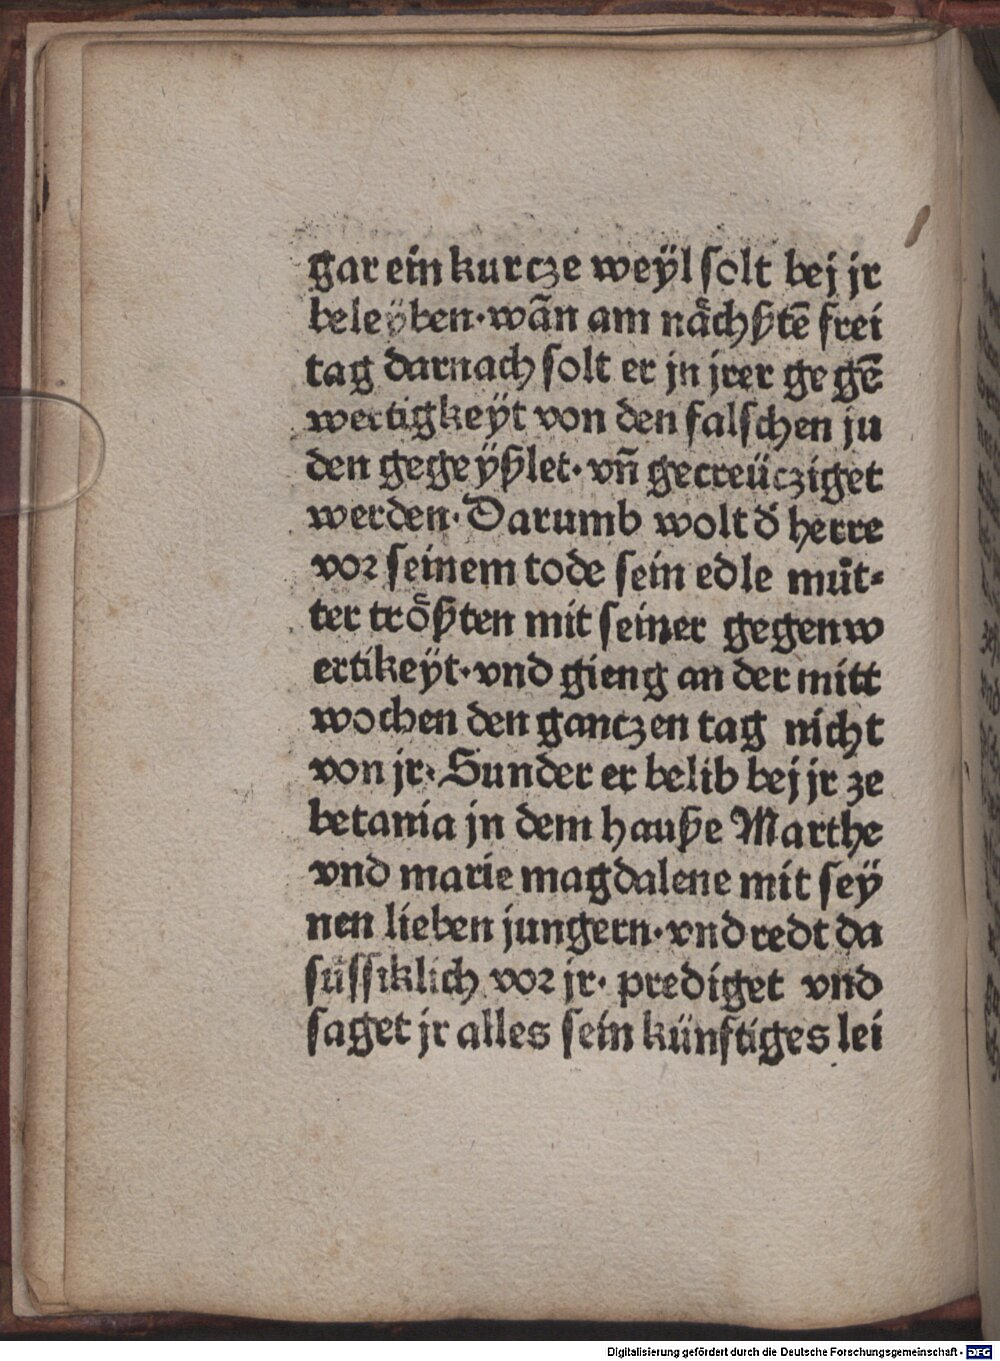 gar ein kurcze weÿl solt bej jr
beleÿben·wãn am nåchßtẽ frei
tag darnach solt er jn jrer gegẽ
wertigkeÿt von den falschen ju
den gegeÿßlet·vñ gecreücziget
werden·Darumb wolt d̕ herre
vor seinem tode sein edle můt⸗
ter trößten mit seiner gegenw
ertikeÿt·vnd gieng an der mitt
wochen den gantzen tag nicht
von jr·Sunder er belib bej jr ze
betania jn dem hauße Marthe
vnd marie magdalene mit seÿ
nen lieben jungern·vnd redt da
süssiklich vor jr·prediget vnd
saget jr alles sein künftiges lei
Digitalisierung gefördert durch die Deutsche Forschungsgemeinschaft - DFG